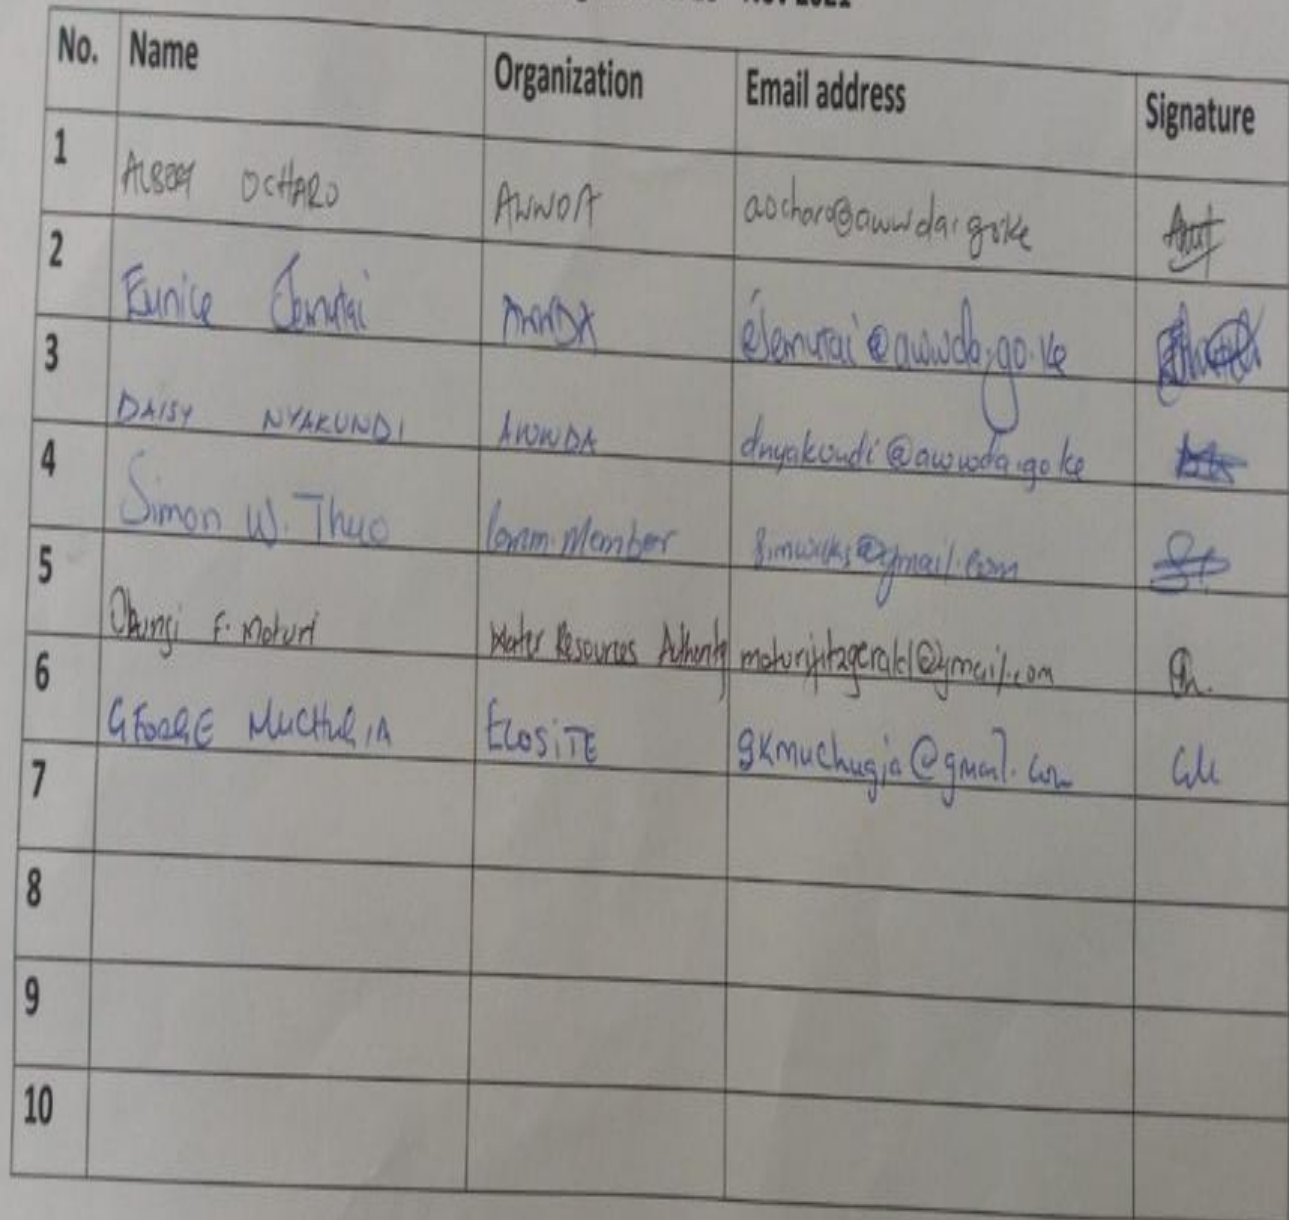 Nov 2021
No. Name Organization Email address Signature
1 ALBERT OCHARO AWWDA aocharo@awwda.go.ke
2 Eunice Jemutai AWWDA ejemutai@awwda.go.ke
3 DAISY NYAKUNDI AWWDA dnyakundi@awwda.go.ke
4 Simon W. Thuo Comm. Member @gmail.com
5 F. Moturi Water Resources Authority moturifitzgerald@gmail.com
6 GEORGE MUCHUGIA ECOSITE gkmuchugia@gmail.com
7
8
9
10